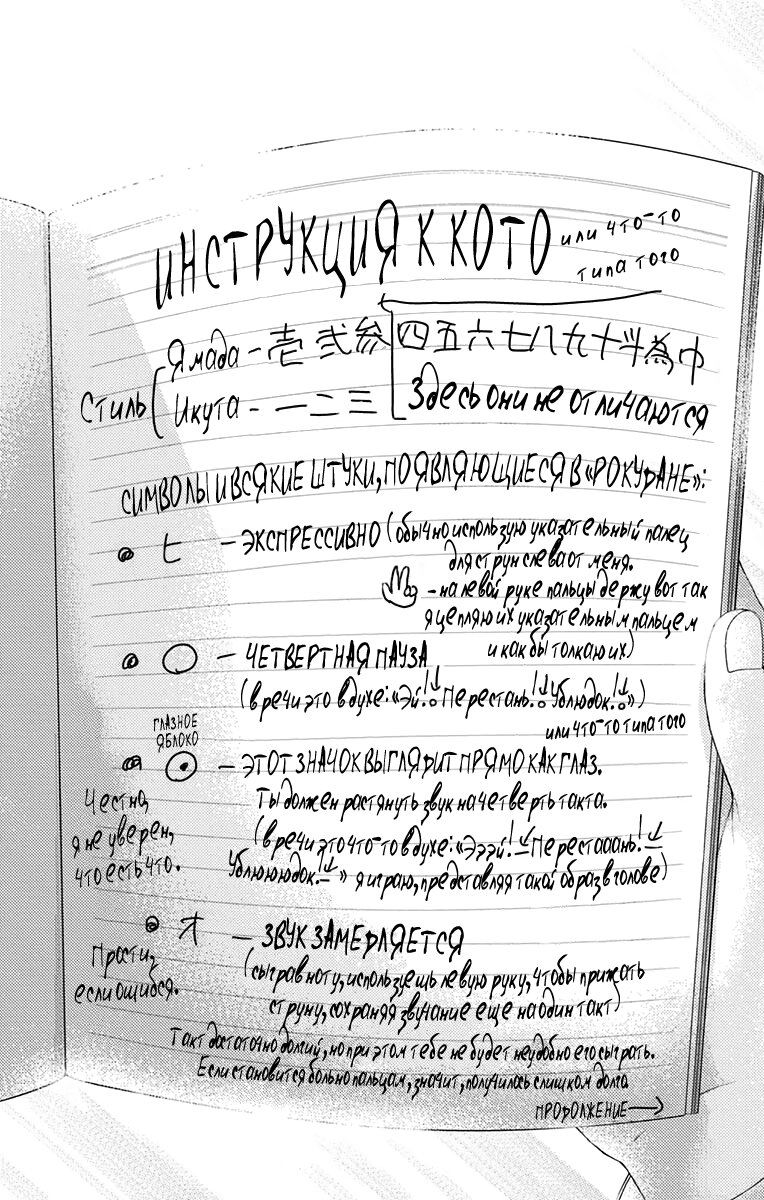 ИНСТРУКЦИЯ К КОТО или что-то
типа того
Стиль
Ямада - 壱 弐 参 四 五 六 七 八 九 十 斗 為 巾
Икута - 一 二 三 Здесь они не отличаются
СИМВОЛЫ И ВСЯКИЕ ШТУКИ, ПОЯВЛЯЮЩИЕСЯ В «РОКУДАНЕ»:
ヒ — ЭКСПРЕССИВНО (обычно использую указательный палец
для струн слева от меня.
— на левой руке пальцы держу вот так
я цепляю их указательным пальцем
и как бы толкаю их)
○ — ЧЕТВЕРТНАЯ ПАУЗА
(в речи это в духе: «Эй! Перестань! Ублюдок!»)
или что-то типа того
ГЛАЗНОЕ
ЯБЛОКО
☉ — ЭТОТ ЗНАЧОК ВЫГЛЯДИТ ПРЯМО КАК ГЛАЗ.
Честно,
я не уверен,
что есть что.
Ты должен растянуть звук на четверть такта.
(в речи это что-то в духе: «Эээй! Перестааань!
Ублюююдок!» я играю, представляя такой образ в голове)
オ — ЗВУК ЗАМЕДЛЯЕТСЯ
Прости,
если ошибся.
(сыграв ноту, используешь левую руку, чтобы прижать
струну, сохраняя звучание еще на один такт)
Такт достаточно долгий, но при этом тебе не будет неудобно его сыграть.
Если становится больно пальцам, значит, получилось слишком долго
ПРОДОЛЖЕНИЕ →